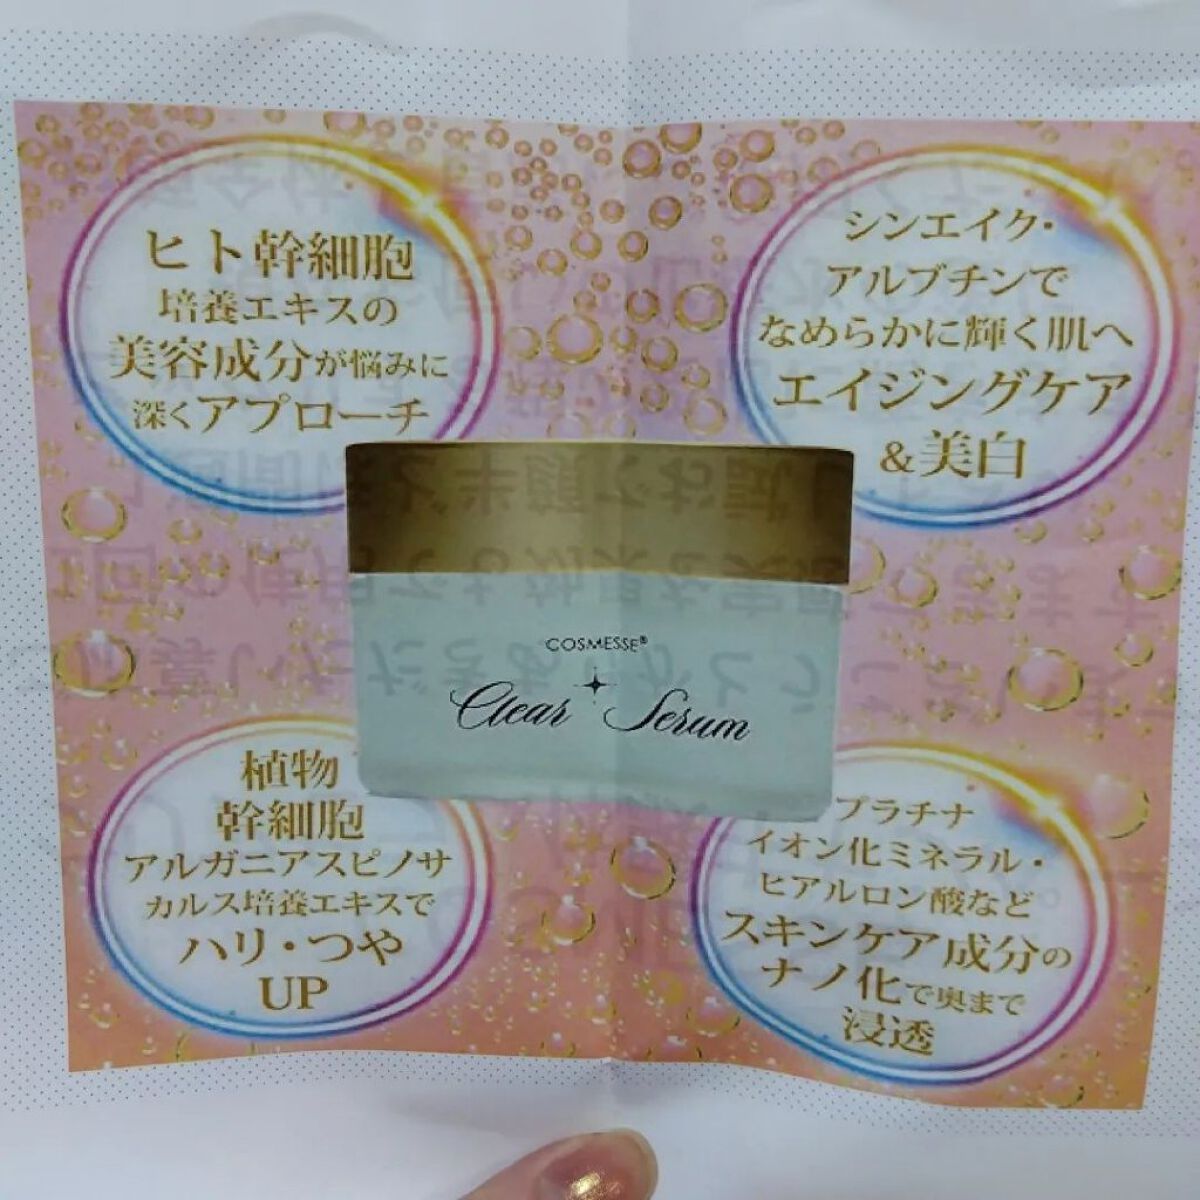 ヒト幹細胞
培養エキスの
美容成分が悩みに
深くアプローチ
シンエイク・
アルブチンで
なめらかに輝く肌へ
エイジングケア
&美白
COSMESSE®
Clear Serum
植物
幹細胞
アルガニアスピノサ
カルス培養エキスで
ハリ・つや
UP
プラチナ
イオン化ミネラル・
ヒアルロン酸など
スキンケア成分の
ナノ化で奥まで
浸透